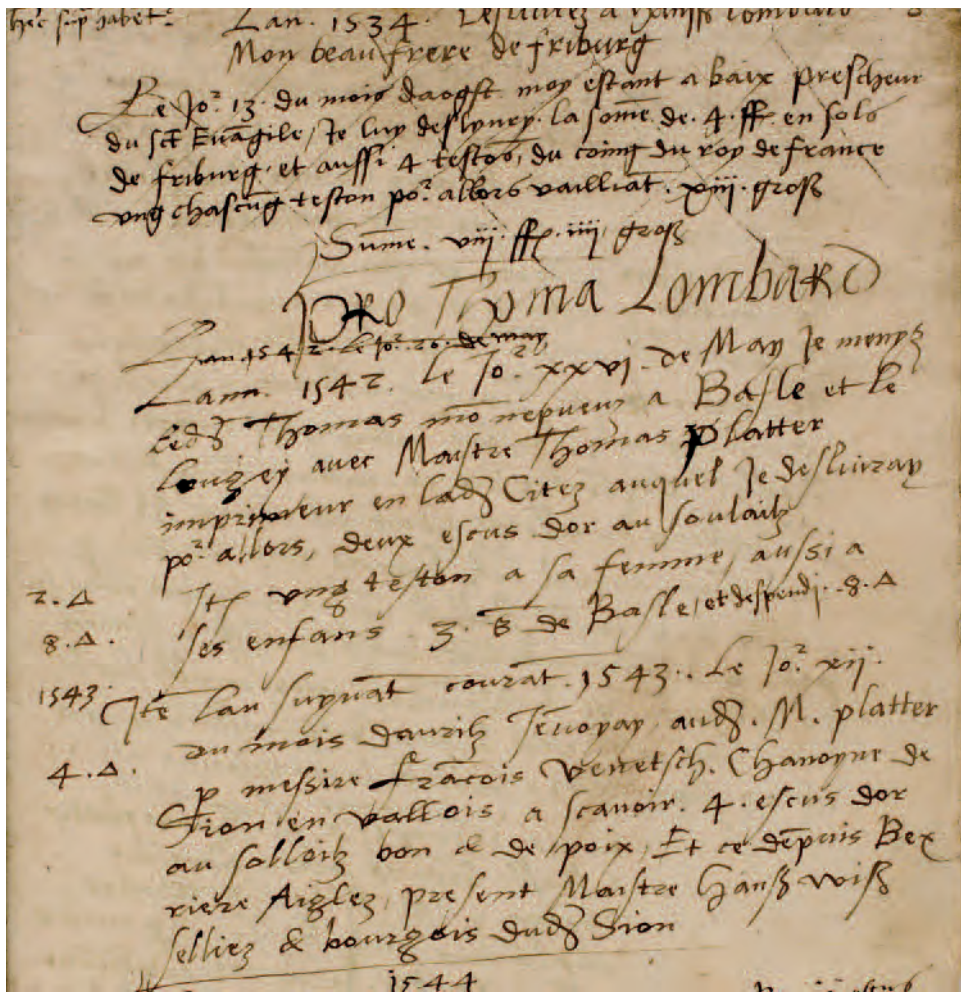 Lan . 1534 . a hanss lombard
Mon beau frere de friburg
Le Jor 13 du mois daogst moy estant a baix prescheur
du sct Evāgile, Je luy deslyury . la some de . 4 . ff en solz
de friburg . et aussi 4 testōs, du coing du roy de france
vng chascūg teston por allors vailliāt . xiij . gross
Sume . viij . ff . iiij . gross
PRO Thoma Lombard
Lan 1542 . Le Jor 20 . de may
Lann . 1542 . Le Jor xxvj . de May Je menys
Led Thomas mō nepueuz a Basle et le
logey avec Maistre Thomas platter
imprimeur en lad Citez auquel Je desliuray
por allors, deux escus dor au soulailz
2 . Δ Itē vng teston a sa femme, aussi a
8 . Δ . ses enfans . 3 . ß de Basle, et despendj . 8 . Δ
1543 . Itē lan suyuāt courāt . 1543 . Le Jor xij .
du mois daurilz Jēuoyay aud . M . platter
4 . Δ . p messire frācois Venetsch . Chanoyne de
Sion en vallois a scauoir . 4 . escus dor
au solloilz bon & de poix, Et ce dēpuis Bex
riere Aiglez, present Maistre Hanss wiss
selliez & bourgois dud Sion
1544